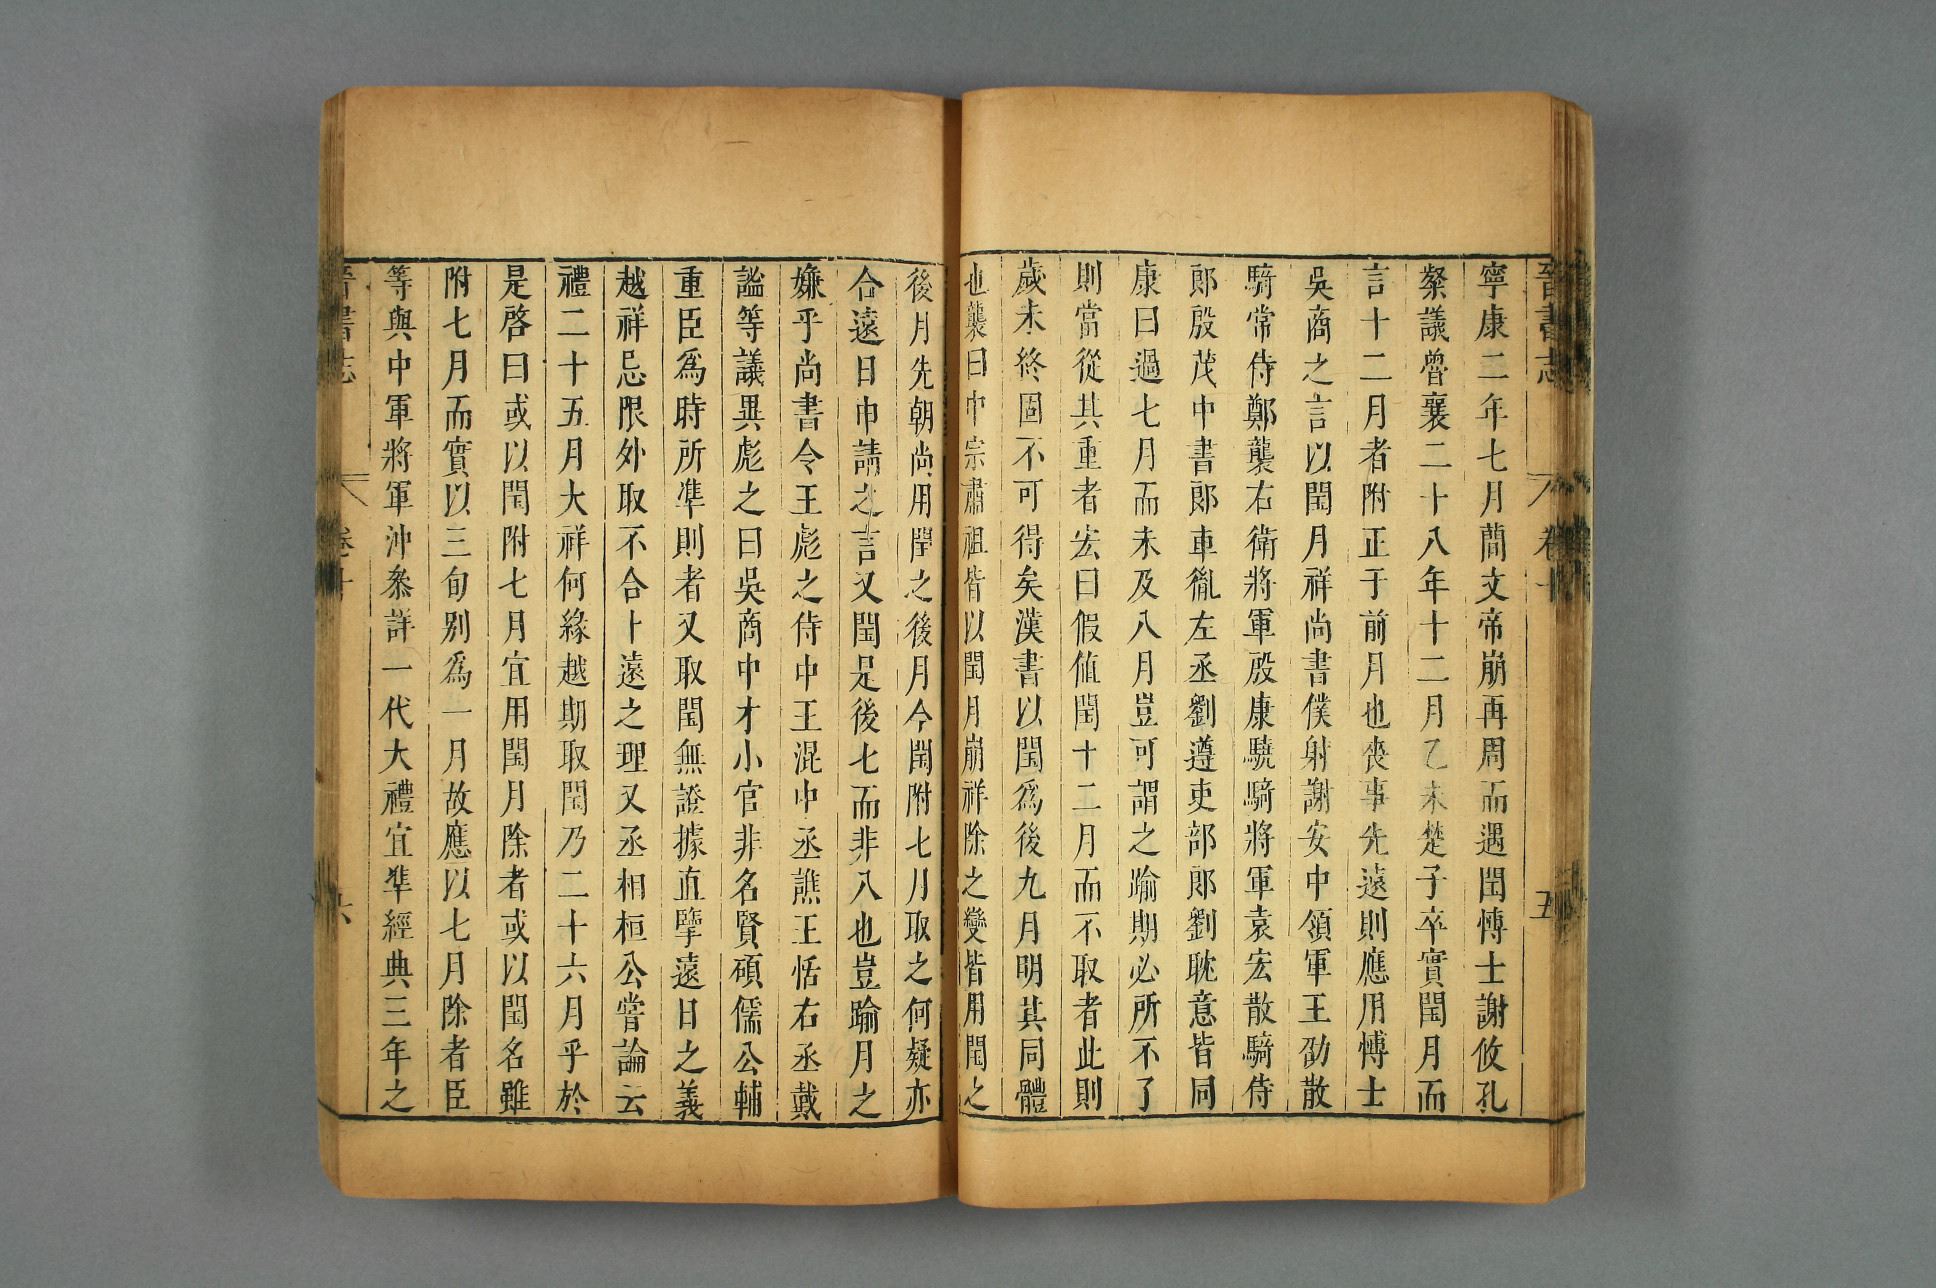 晉書志 卷十 五
寧康二年七月簡文帝崩再周而遇閏博士謝攸孔
粲議魯襄二十八年十二月乙未楚子卒實閏月而
言十二月者附正于前月也喪事先遠則應用博士
吳商之言以閏月祥尚書僕射謝安中領軍王劭散
騎常侍鄭襲右衛將軍殷康驍騎將軍袁宏散騎侍
郎殷茂中書郎車胤左丞劉遵吏部郎劉耽意皆同
康曰過七月而未及八月豈可謂之踰期必所不了
則當從其重者宏曰假值閏十二月而不取者此則
歲未終固不可得矣漢書以閏為後九月明其同體
也襲曰中宗肅祖皆以閏月崩祥除之變皆用閏之
後月先朝尚用閏之後月今閏附七月取之何疑亦
合遠日申請之言又閏是後七而非八也豈踰月之
嫌乎尚書令王彪之侍中王混中丞譙王恬右丞戴
謐等議異彪之曰吳商中才小官非名賢碩儒公輔
重臣為時所準則者又取閏無證據直擥遠日之義
越祥忌限外取不合卜遠之理又丞相桓公嘗論云
禮二十五月大祥何緣越期取閏乃二十六月乎於
是啓曰或以閏附七月宜用閏月除者或以閏名雖
附七月而實以三旬別為一月故應以七月除者臣
等與中軍將軍沖參詳一代大禮宜準經典三年之
晉書志 卷十 六